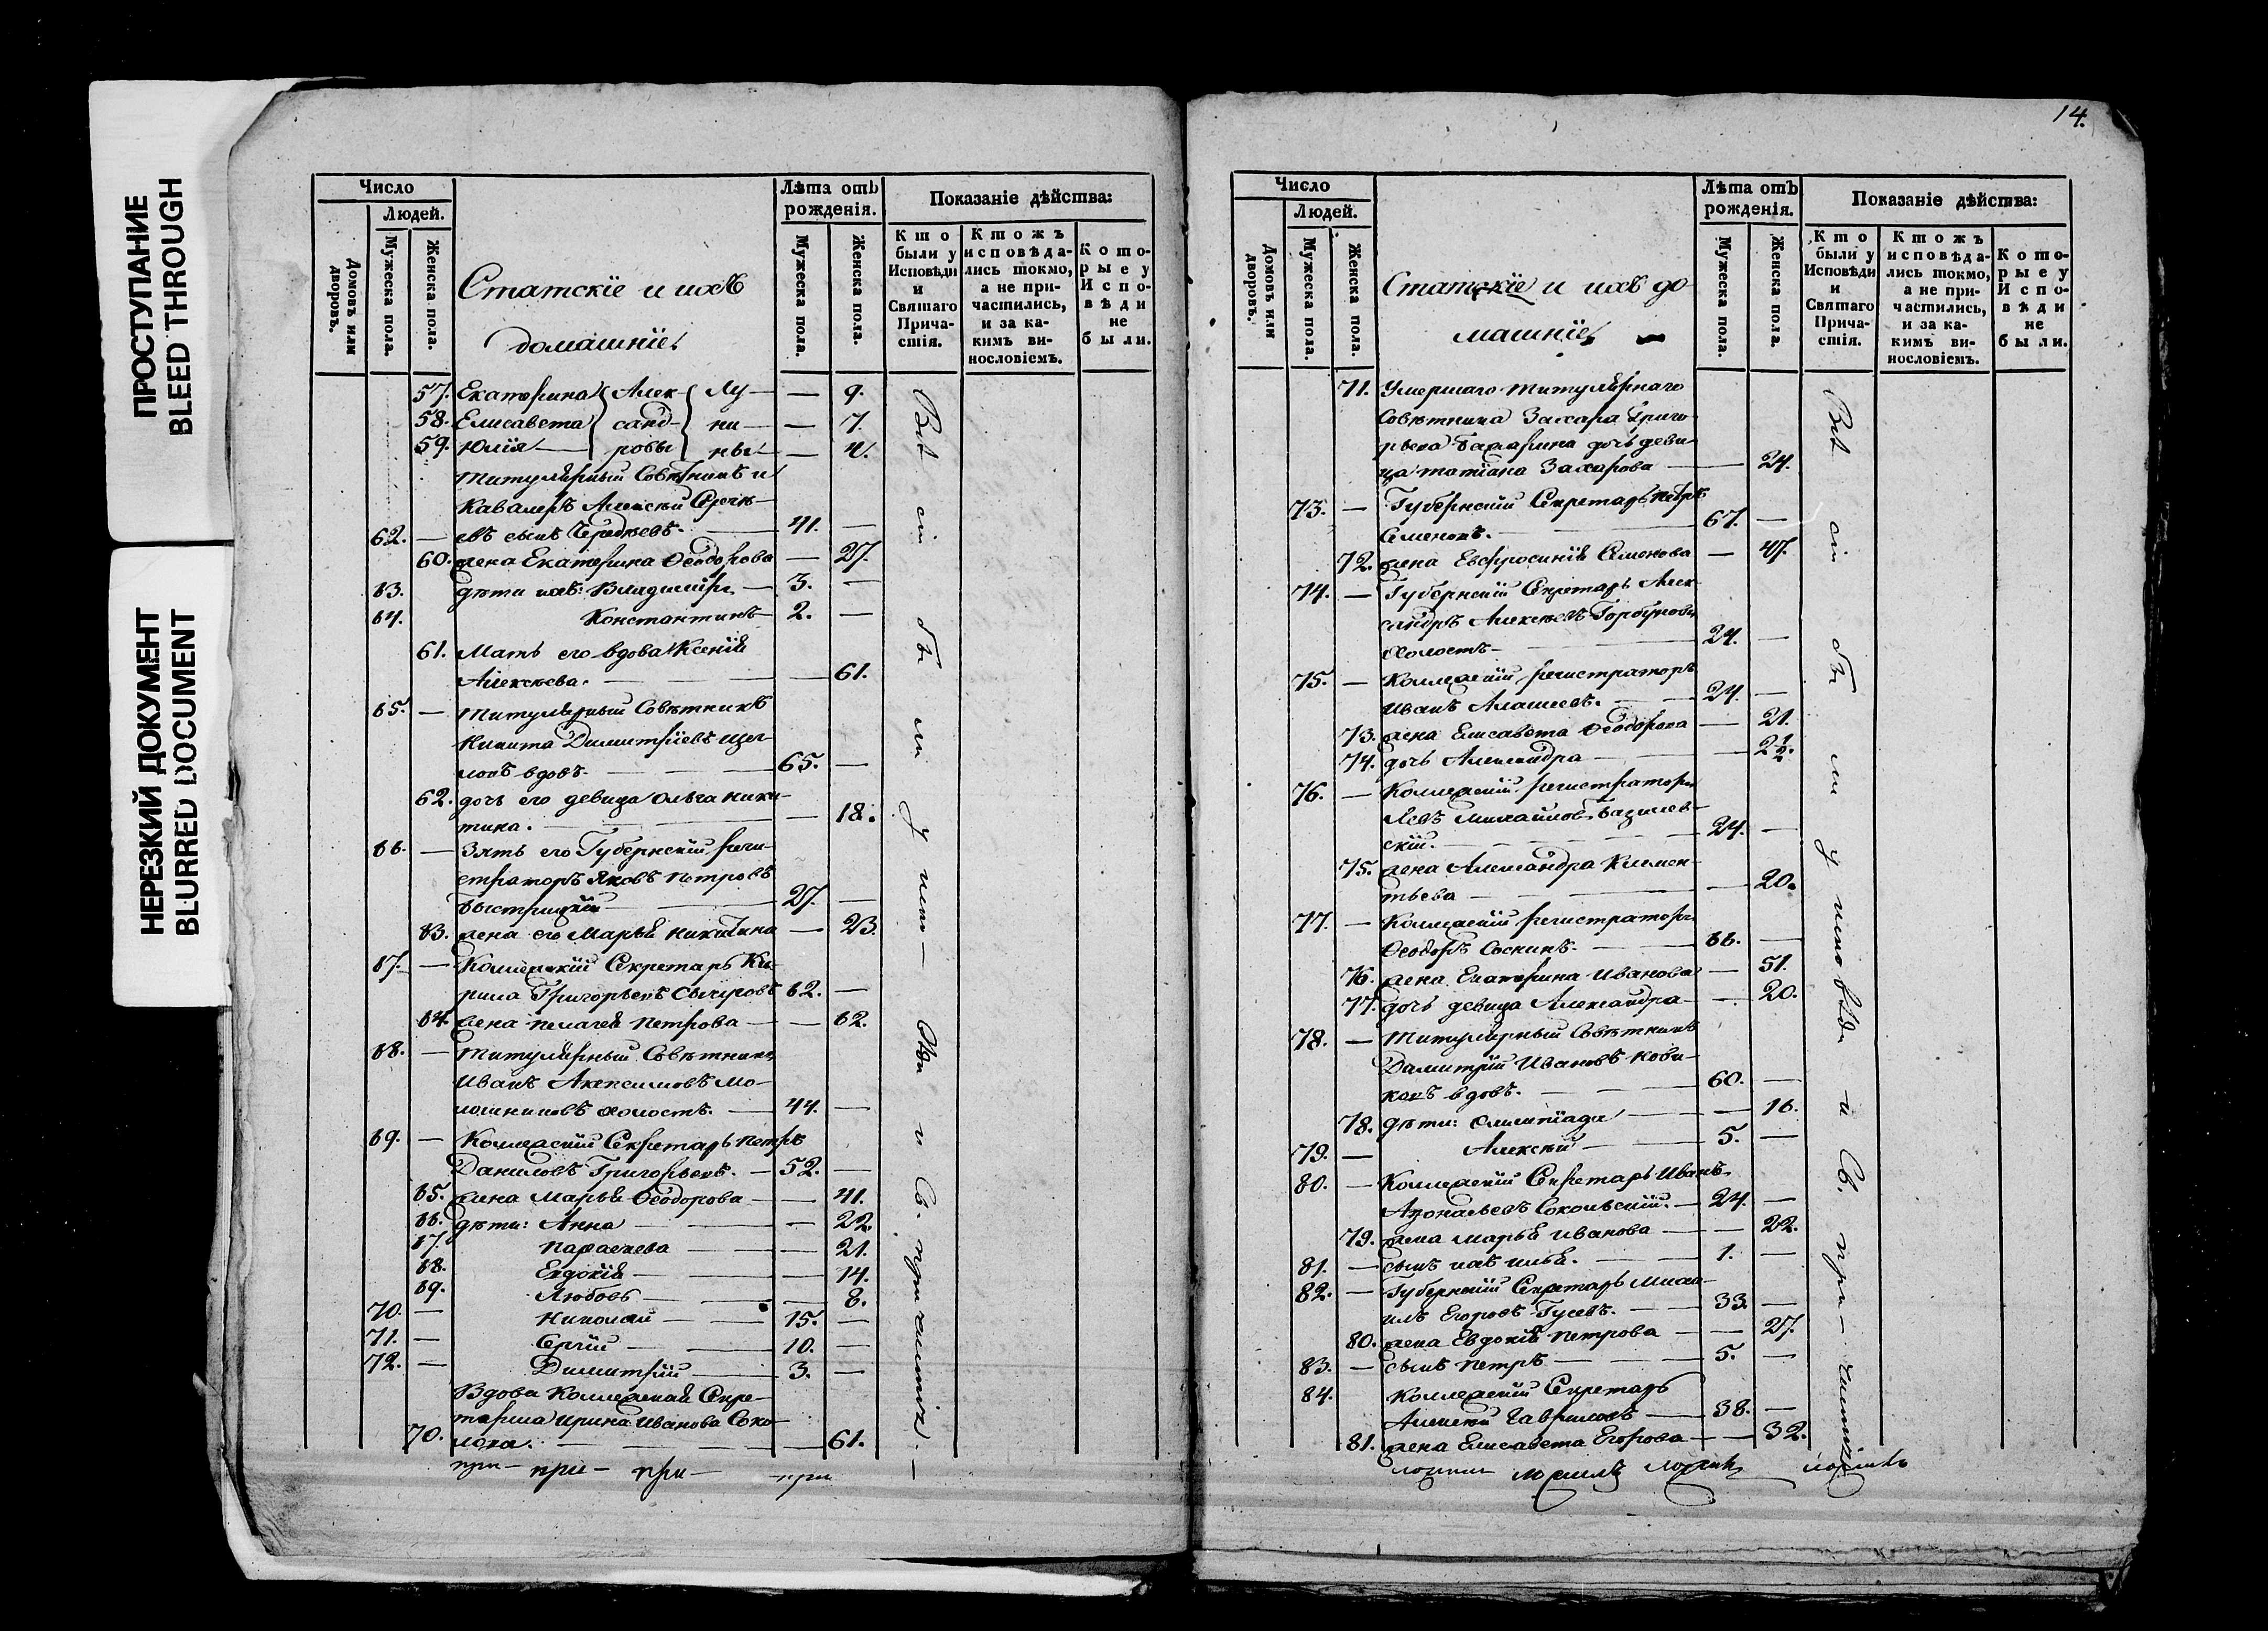 ПРОСТУПАНИЕ
BLEED THROUGH
НЕРЕЗКИЙ ДОКУМЕНТ
BLURRED DOCUMENT
Число
Людей.
Домовъ или дворовъ.
Мужеска пола.
Женска пола.
Статскіе и ихъ
домашніе.
Лѣта отъ
рожденія.
Мужеска пола.
Женска пола.
Показаніе дѣйства:
Кто
были у
Исповѣди
и
Святаго
Прича-
стія.
Ктожъ
исповѣда-
лись токмо,
а не при-
частились,
и за ка-
кимъ ви-
нословіемъ.
Кото-
рые у
Испо-
вѣди
не
были.
57. Екатерина Алек- Лу- — 9.
58. Елисавета санд- ки- — 7.
59. Юлія — ровы ны — 4.
Титулярный Совѣтникъ и
Кавалеръ Алексѣй Сергѣе-
62. — въ сынъ 41. —
60. жена Екатерина Ѳеодорова — 27.
63. дѣти ихъ: Владиміръ — 3. —
64. Константинъ — 2. —
61. Мать его вдова Ксенія
Алексѣева. — 61.
65. — Титулярный Совѣтникъ
Никита Димитріевъ Щег-
ловъ вдовъ. — 65. —
62. дочь его девица Ольга Ники-
тина. — 18.
66. — Зять его Губернскій реги-
страторъ Яковъ Петровъ
Быстрицкій — 27. —
63. жена его Марья Никитина — 23.
67. — Коллежскій Секретарь Ки-
рила Григорьевъ 62. —
64. жена Пелагея Петрова — 62.
68. — Титулярный Совѣтникъ
Иванъ Акепсимовъ Мо-
лошниковъ холостъ. — 44. —
69. — Коллежскій Секретарь Петръ
Даниловъ Григорьевъ. — 52. —
65. жена Марья Ѳеодорова — 41.
66. дѣти: Анна — 22.
67. Параскева — 21.
68. Евдокія — 14.
69. Любовь — 8.
70. — Николай — 15. —
71. — Сергій — 10. —
72. — Димитрій — 3. —
Вдова Коллежская Секре-
тарша Ирина Иванова Соко-
70. лова. — 61.
при- при- при- при
Всѣ сіи были у испо- вѣди и Св. причастія. —
14.
Число
Людей.
Домовъ или дворовъ.
Мужеска пола.
Женска пола.
Статскіе и ихъ до
машніе, —
Лѣта отъ
рожденія.
Мужеска пола.
Женска пола.
Показаніе дѣйства:
Кто
были у
Исповѣди
и
Святаго
Прича-
стія.
Ктожъ
исповѣда-
лись токмо,
а не при-
частились,
и за ка-
кимъ ви-
нословіемъ.
Кото-
рые у
Испо-
вѣди
не
были.
71. Умершаго Титулярнаго
Совѣтника Захара Григо-
рьева дочь деви-
ца Татіана Захарова — 24.
73. — Губернскій Секретарь Петръ
Семеновъ. — 67. —
72. жена Евфросинія Семенова — 47.
74. — Губернскій Секретарь Алек-
сандръ Алексѣевъ Горбуновъ
холостъ — 24. —
75. — Коллежскій регистраторъ
Иванъ — 24. —
73. жена Елисавета Ѳеодорова — 21.
74. дочь Александра — 2½.
76. — Коллежскій регистраторъ
Левъ Михайловъ Базилев-
скій. — 24. —
75. жена Александра Климен-
тьева — 20.
77. — Коллежскій регистраторъ
Ѳеодоръ Соснинъ. — 66. —
76. жена Екатерина Иванова — 51.
77. дочь девица Александра — 20.
78. — Титулярный Совѣтникъ
Димитрій Ивановъ Нови-
ковъ вдовъ. — 60. —
78. дѣти: Олимпіада — 16.
79. — Алексѣй — 5. —
80. — Коллежскій Секретарь Иванъ
Сокольскій. — 24. —
79. жена Марья Иванова — 22.
81. — сынъ ихъ Илья. — 1. —
82. — Губернскій Секретарь Миха-
илъ Егоровъ Гусевъ. — 33. —
80. жена Евдокія Петрова — 27.
83. — сынъ Петръ — 5. —
84. Коллежскій Секретарь
Алексѣй Гавриловъ — 38. —
81. жена Елисавета Егорова — 32.
Всѣ сіи были у исповѣди и Св. при- частія